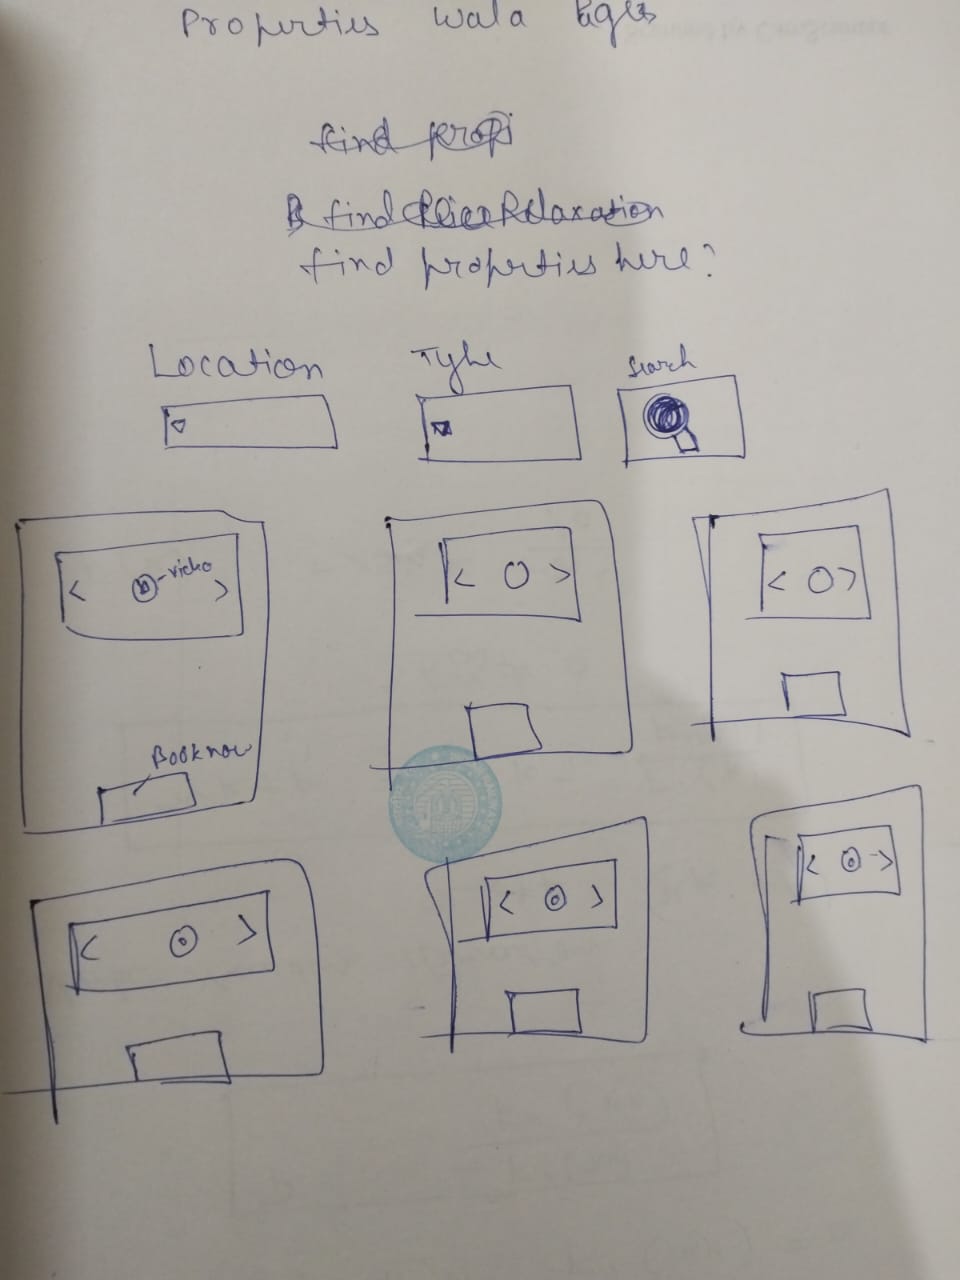 Properties wala Pages
find prop
find Relaxation
find properties here?
Location Type Search
video
Book now